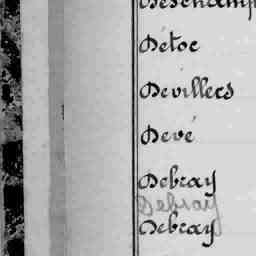 Deschamps
Détoc
Devillers
Devé
Debray
Debray
Debray